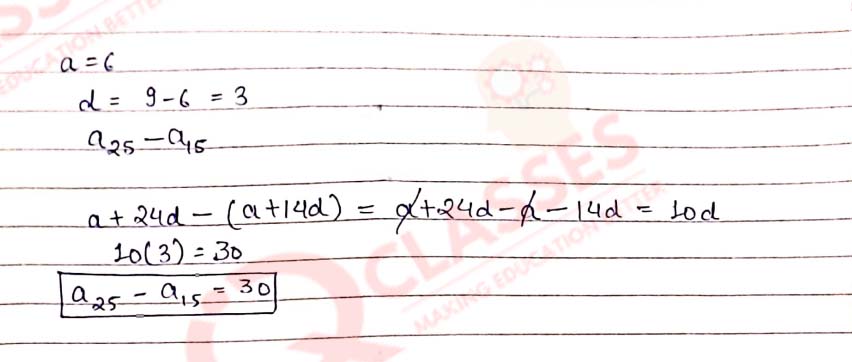 a = 6
d = 9 - 6 = 3
a₂₅ - a₁₅
a + 24d - (a + 14d) = a + 24d - a - 14d = 10d
10(3) = 30
a₂₅ - a₁₅ = 30
CLASSES
MAKING EDUCATION BETTER
EDUCATION BETTER